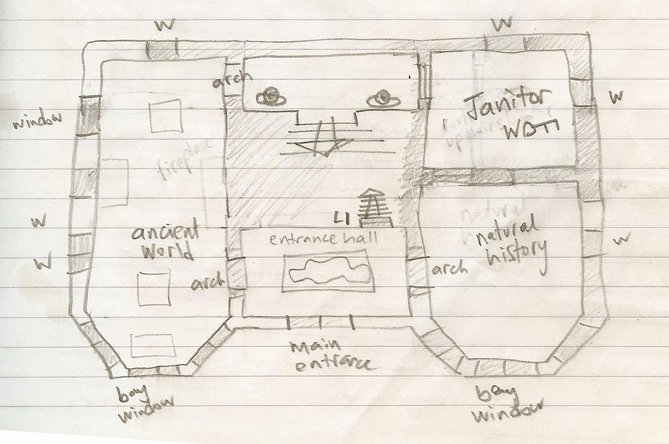 W
W
arch
Janitor
W
window
fireplace
W
W
ancient
world
LI
entrance hall
natural
history
W
arch
arch
main
entrance
bay
window
bay
window